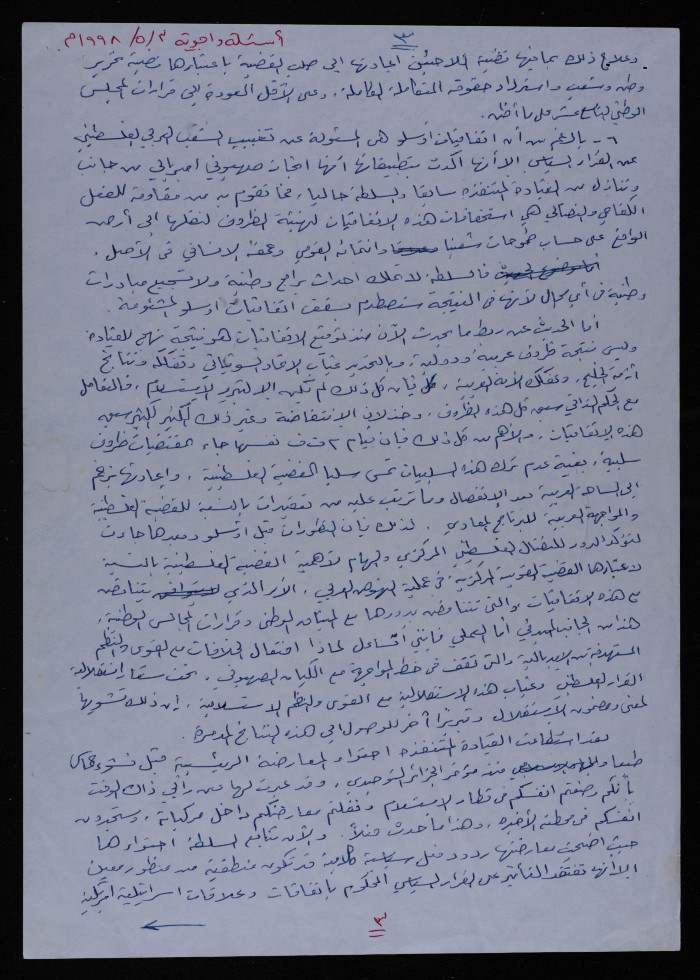 ٣
أسئلة وأجوبة ٣/٥/١٩٩٨م
وعلاج ذلك بما فيها قضية اللاجئين اعادتها الى صلب القضية باعتبارها قضية تحرير
وطن وشعب واسترداد حقوقه المتكاملة الكاملة. وعلى الأقل العودة الى قرارات المجلس
الوطني التاسع عشر على ما أظن.
٦ - بالرغم من أن اتفاقيات أوسلو هي المسئولة عن تغييب الشعب العربي الفلسطيني
عن القرار السياسي الا أنها أكدت بتطبيقاتها أنها انجاز صهيوني امبريالي من جانب
وتنازل من القيادة المتنفذة سابقا والسلطة حاليا، فما تقوم به من مقاومة للعمل
الكفاحي والنضالي هي استحقاقات هذه الاتفاقيات لتهيئة الظروف لنقلها الى أرض
الواقع على حساب طموحات شعبنا وانتمائه القومي وعمقه الانساني في الأصل.
فالسلطة لا تملك احداث برامج وطنية ولا تشجيع مبادرات
وطنية في أي مجال لأنها في النتيجة ستصطدم بسقف اتفاقيات اوسلو المشئومة.
أما الحديث عن ربط ما يحدث الآن منذ توقيع الاتفاقيات هو نتيجة نهج للقيادة
وليس نتيجة ظروف عربية ودولية، وبالتحديد غياب الاتحاد السوفياتي وتفككه ونتائج
أزمة الخليج، وتفكك الأمة العربية، فإن كل ذلك لم تكن الا لتبرير الاستسلام، فالتعامل
مع الحكم الذاتي سبق كل هذه الظروف، وخذلان الانتفاضة وغير ذلك الكثير الكثير سبق
هذه الاتفاقيات، والأهم من كل ذلك فإن قيام م ت ف نفسها جاء لمقتضيات ظروف
سلبية، بغية عدم ترك هذه السلبيات تمس سلبا القضية الفلسطينية، واعادتها بزخم
الى الساحة العربية بعد الانفصال وما ترتب عليه من تعقيدات بالنسبة للقضية الفلسطينية
والمواجهة العربية للبرنامج المعادي. لذلك فإن التطورات قبل أوسلو وبعدها جاءت
لتؤكد الدور للنضال الفلسطيني المركزي والهام لأهمية القضية الفلسطينية بالنسبة
لاعتبارها القضية القومية المركزية في عملية النهوض العربي، الأمر الذي يتناقض
مع هذه الاتفاقيات والتي تتناقض بدورها مع الميثاق الوطني وقرارات المجالس الوطنية،
هذا من الجانب المبدئي أما العملي فإنني أتساءل لماذا افتعال الخلافات مع القوى والنظم
المستهدفة من الامبريالية والتي تقف في خط المواجهة مع الكيان الصهيوني، تحت ستار استقلالية
القرار الفلسطيني وغياب هذه الاستقلالية مع القوى والنظم الاستسلامية، إن ذلك تشويها
لمعنى ومضمون الاستقلال وتبريرا آخر للوصول الى هذه النتائج المدمرة.
لقد استطاعت القيادة المتنفذة احتواء المعارضة الرئيسية قبل نشوء حماس
طبعا منذ مؤتمر الجزائر التوحيدي، وقد عبرت لها عن رأيي ذاك الوقت
بأنكم وضعتم انفسكم في قطار الاستسلام ونقلتم معارضتكم داخل مركباته، وستجدون
انفسكم في محطته الأخيرة، وهذا ما حدث فعلاً. والآن تتابع السلطة احتواءها
حيث اضحت معارضتها ردود فعل سياسية كلامية قد تكون منطقية من منظور معين
الا أنها تفتقد التأثير على القرار السياسي المحكوم باتفاقات وعلاقات اسرائيلية امريكية
٣